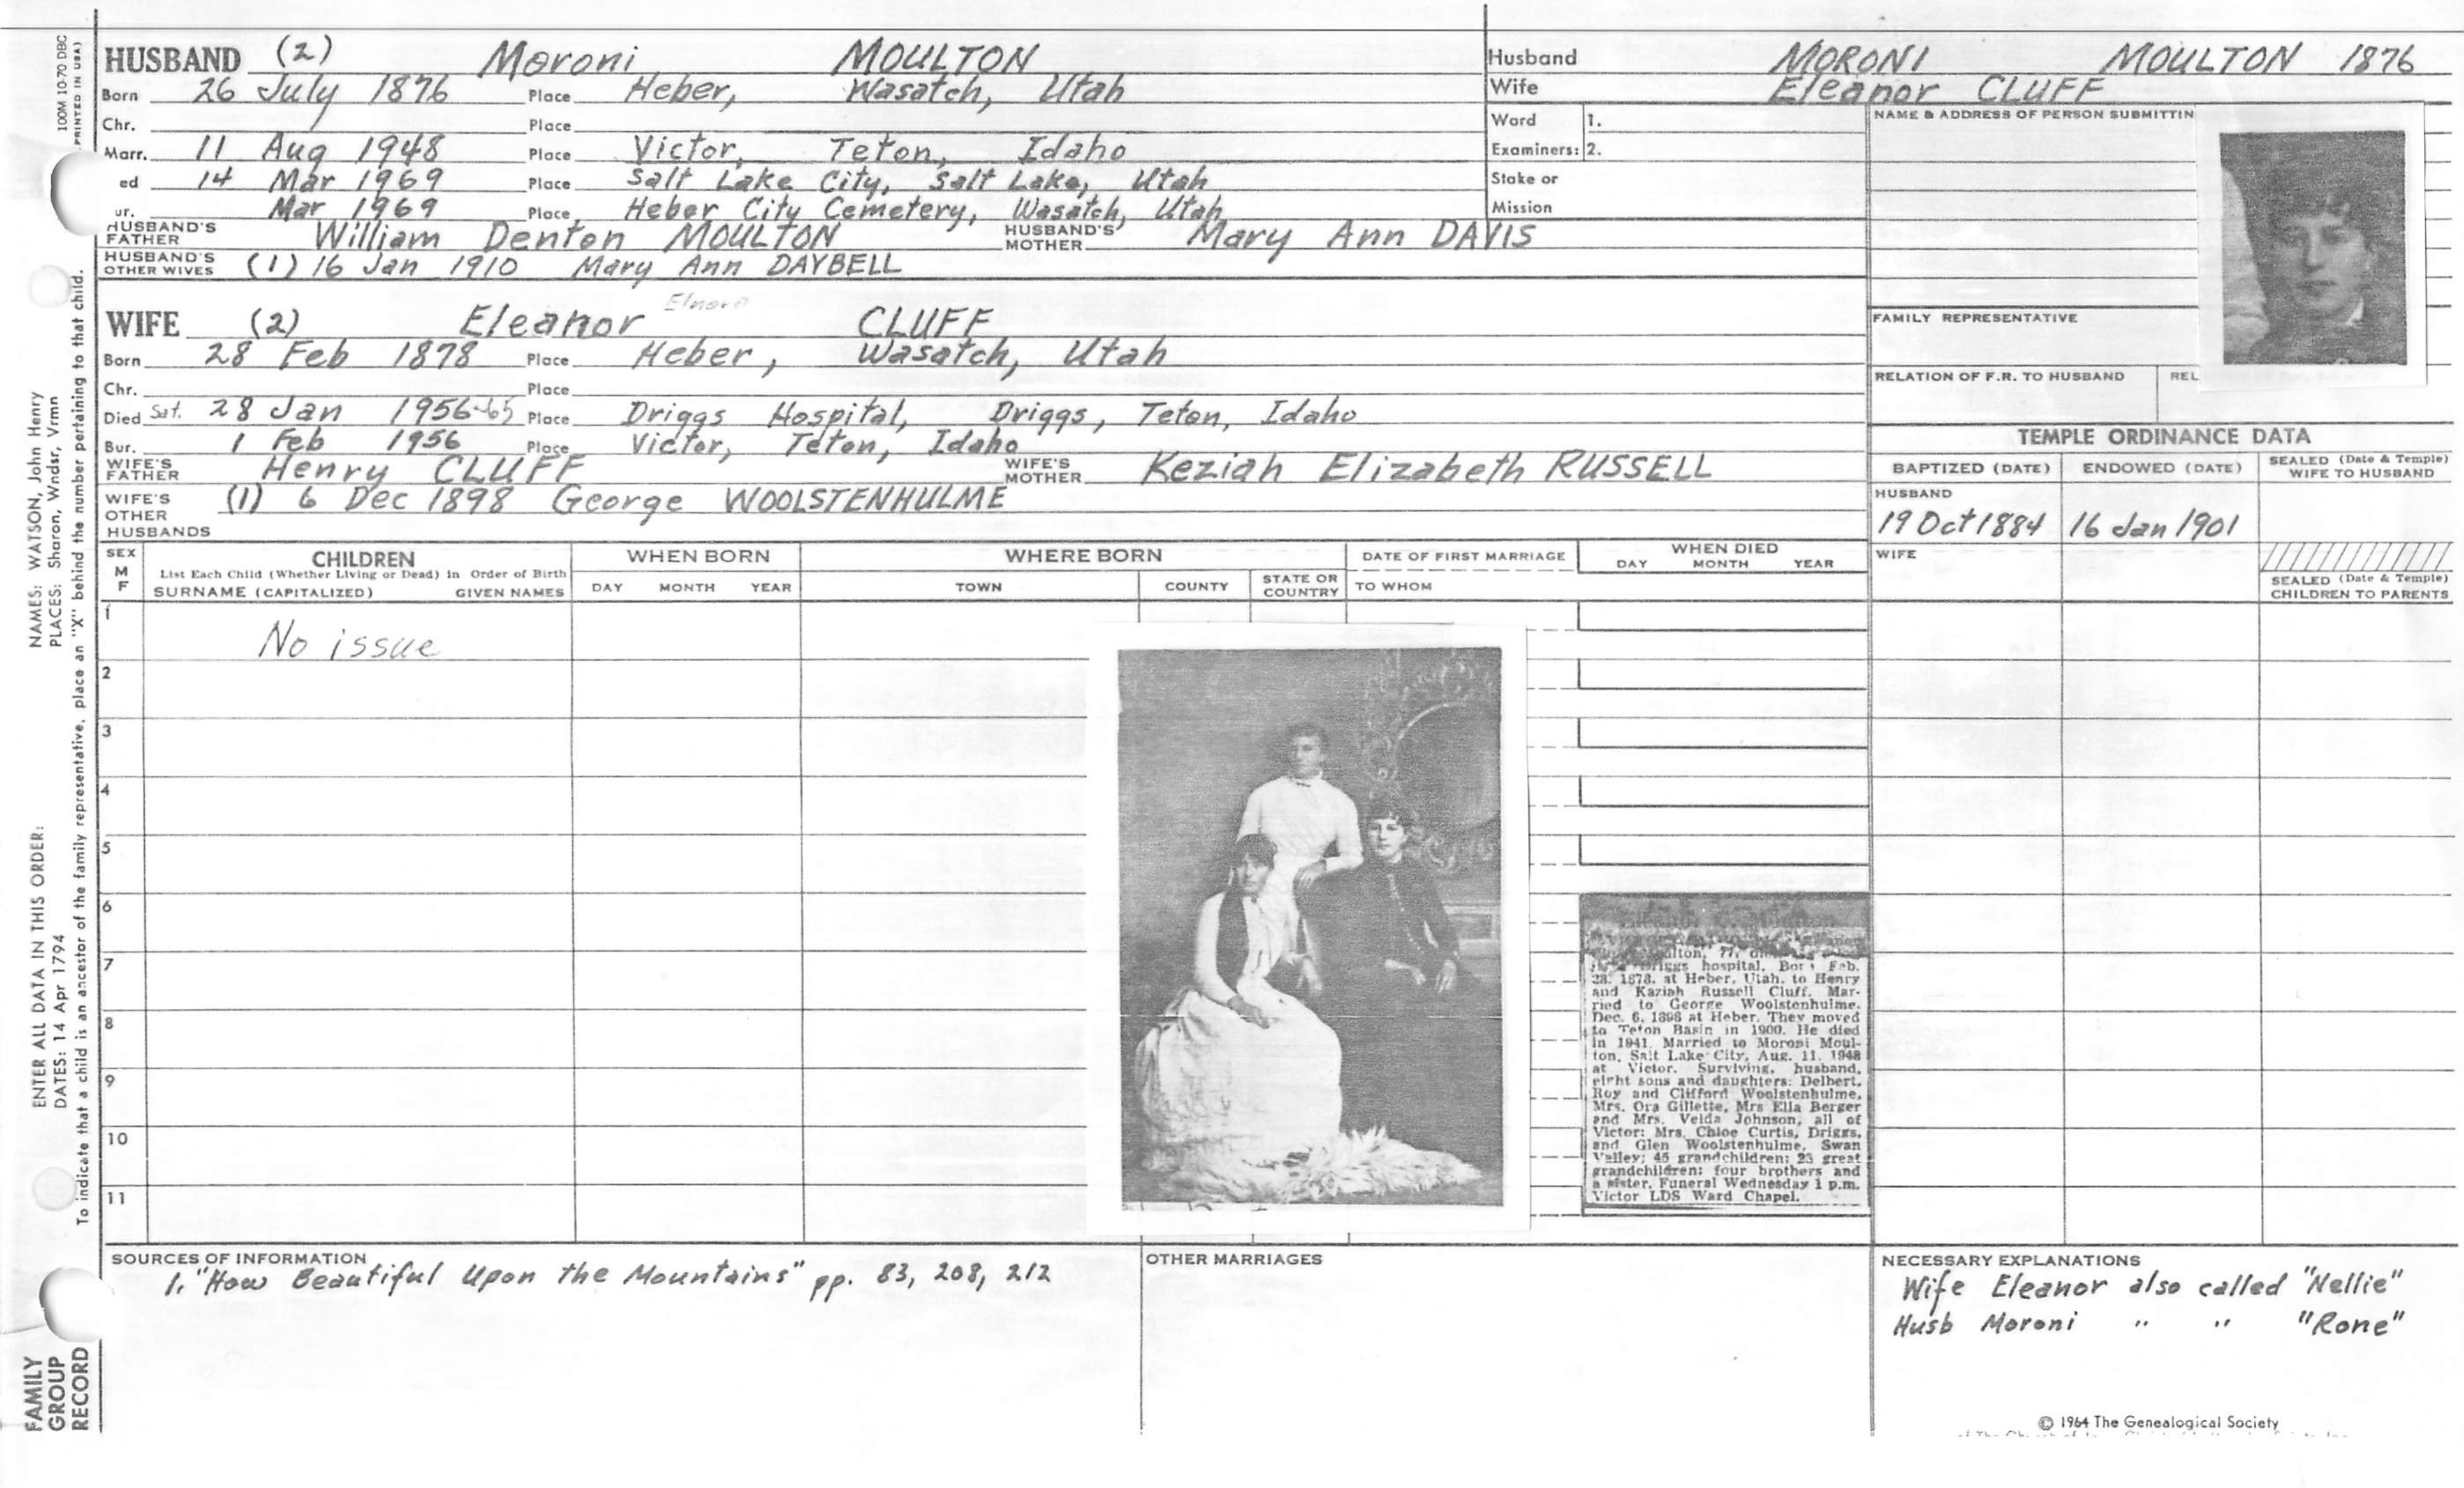 HUSBAND (2) Moroni MOULTON
Born 26 July 1876 Place Heber, Wasatch, Utah
Chr. Place
Marr. 11 Aug 1948 Place Victor, Teton, Idaho
ed 14 Mar 1969 Place Salt Lake City, Salt Lake, Utah
ur. Mar 1969 Place Heber City Cemetery, Wasatch, Utah
HUSBAND'S FATHER William Denton MOULTON HUSBAND'S MOTHER Mary Ann DAVIS
HUSBAND'S OTHER WIVES (1) 16 Jan 1910 Mary Ann DAYBELL
Elnora
WIFE (2) Eleanor CLUFF
Born 28 Feb 1878 Place Heber, Wasatch, Utah
Chr. Place
Died Sat. 28 Jan 1956-65 Place Driggs Hospital, Driggs, Teton, Idaho
Bur. 1 Feb 1956 Place Victor, Teton, Idaho
WIFE'S FATHER Henry CLUFF WIFE'S MOTHER Keziah Elizabeth RUSSELL
WIFE'S OTHER HUSBANDS (1) 6 Dec 1898 George WOOLSTENHULME
Husband MORONI MOULTON 1876
Wife Eleanor CLUFF
Ward 1.
Examiners: 2.
Stake or
Mission
NAME & ADDRESS OF PERSON SUBMITTIN
FAMILY REPRESENTATIVE
RELATION OF F.R. TO HUSBAND REL
TEMPLE ORDINANCE DATA
BAPTIZED (DATE) ENDOWED (DATE) SEALED (Date & Temple) WIFE TO HUSBAND
HUSBAND
19 Oct 1884 16 Jan 1901
WIFE
SEALED (Date & Temple)
CHILDREN TO PARENTS
SEX
M
F
CHILDREN
List Each Child (Whether Living or Dead) in Order of Birth
SURNAME (CAPITALIZED) GIVEN NAMES
WHEN BORN
DAY MONTH YEAR
WHERE BORN
TOWN COUNTY STATE OR COUNTRY
DATE OF FIRST MARRIAGE
TO WHOM
WHEN DIED
DAY MONTH YEAR
1
No issue
2
3
4
5
6
7
8
9
10
11
ulton, 77,
Driggs hospital. Born Feb.
28, 1878, at Heber, Utah, to Henry
and Kaziah Russell Cluff. Mar-
ried to George Woolstenhulme,
Dec. 6, 1898 at Heber. They moved
to Teton Basin in 1900. He died
in 1941. Married to Moroni Moul-
ton, Salt Lake City, Aug. 11, 1948
at Victor. Surviving, husband,
eight sons and daughters: Delbert,
Roy and Clifford Woolstenhulme,
Mrs. Ora Gillette, Mrs Ella Berger
and Mrs. Velda Johnson, all of
Victor; Mrs. Chloe Curtis, Driggs,
and Glen Woolstenhulme, Swan
Valley; 45 grandchildren; 23 great
grandchildren; four brothers and
a sister. Funeral Wednesday 1 p.m.
Victor LDS Ward Chapel.
SOURCES OF INFORMATION
1. "How Beautiful Upon the Mountains" pp. 83, 208, 212
OTHER MARRIAGES
NECESSARY EXPLANATIONS
Wife Eleanor also called "Nellie"
Husb Moroni " " "Rone"
© 1964 The Genealogical Society
100M 10-70 DBC
PRINTED IN USA)
NAMES: WATSON, John Henry
PLACES: Sharon, Wndsr, Vrmn
ENTER ALL DATA IN THIS ORDER:
DATES: 14 Apr 1794
To indicate that a child is an ancestor of the family representative, place an "X" behind the number pertaining to that child.
FAMILY
GROUP
RECORD